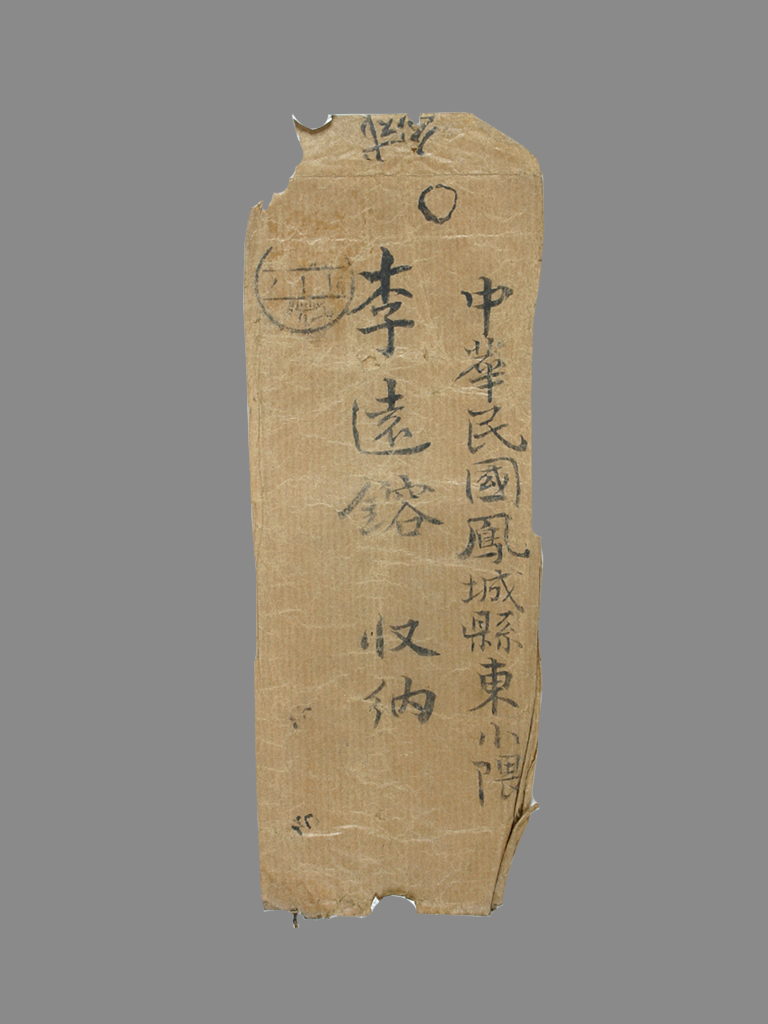 中華民國鳳城縣東小隈
李遠鎔 收納